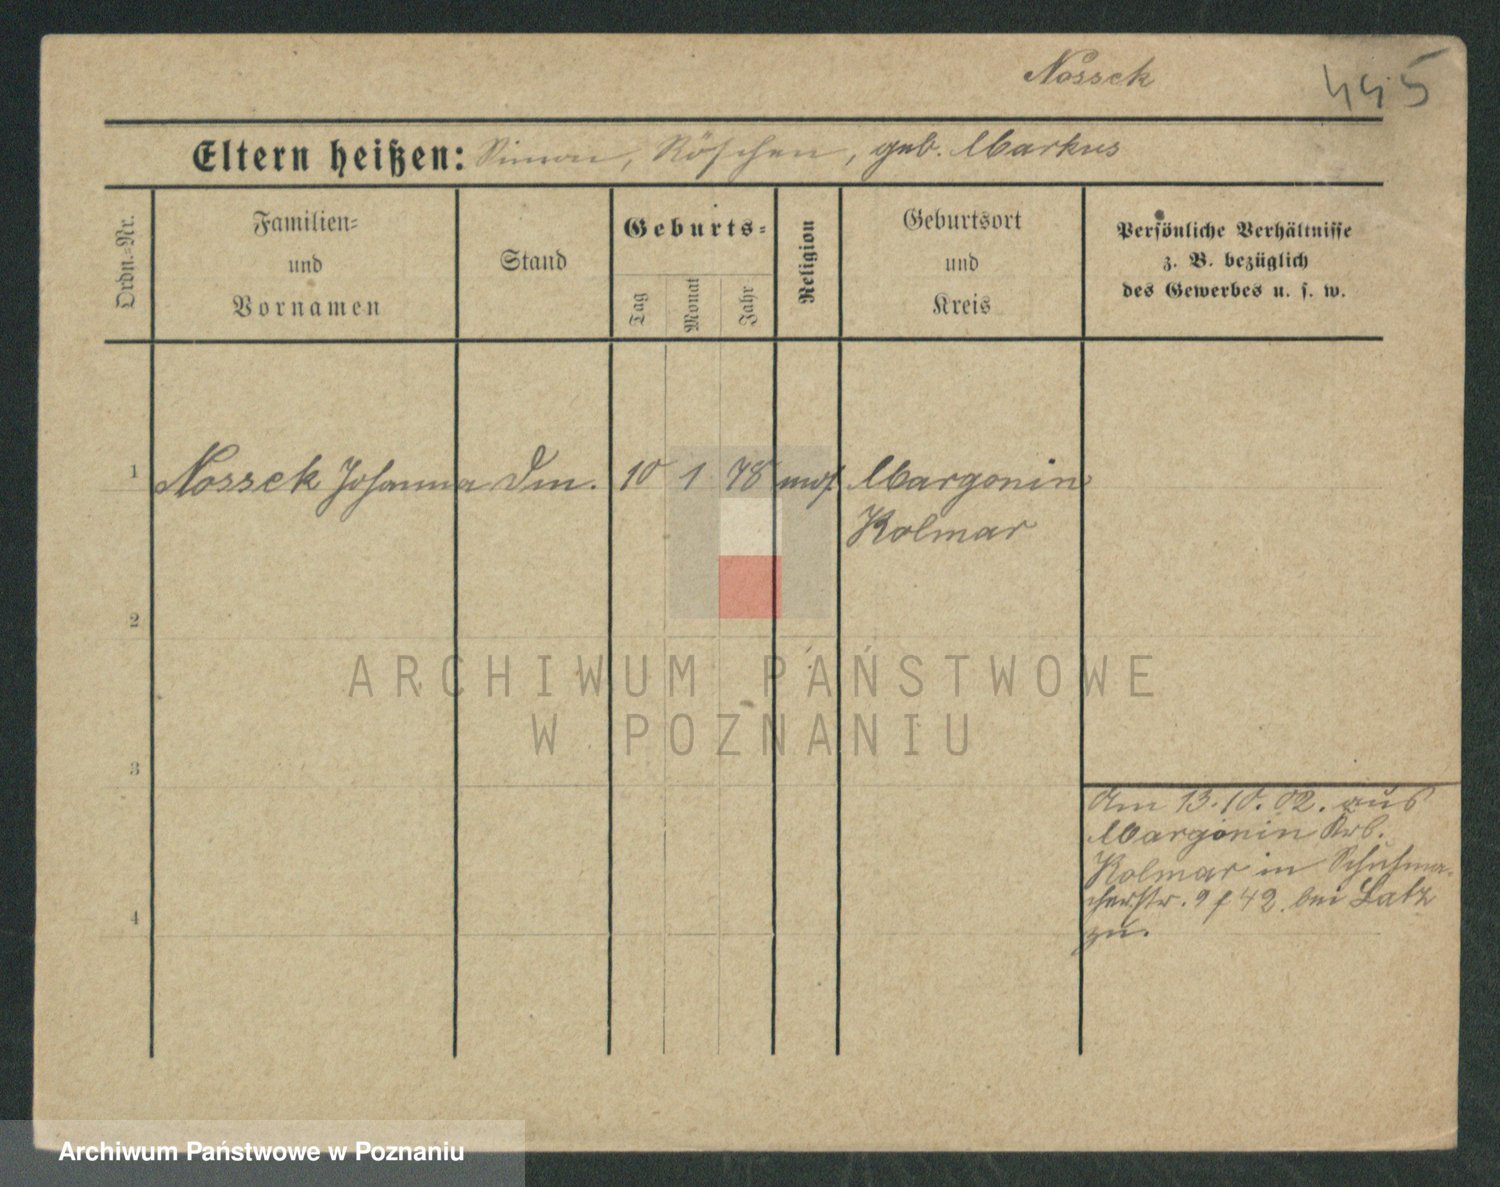 Nossek
445
Eltern heißen: Simon, Röschen, geb. Markus
Ordn.-Nr.
Familien-
und
Vornamen
Stand
Geburts-
Tag
Monat
Jahr
Religion
Geburtsort
und
Kreis
Persönliche Verhältnisse
z. B. bezüglich
des Gewerbes u. s. w.
1 Nossek Johanna Dm. 10 1 78 mos. Margonin
Kolmar
2
3
4
ARCHIWUM PAŃSTWOWE
W POZNANIU
Am 13.10.02. aus
Margonin Krb.
Kolmar in Schuhma-
cherstr. 9 f 42. bei Latz
zu.
Archiwum Państwowe w Poznaniu